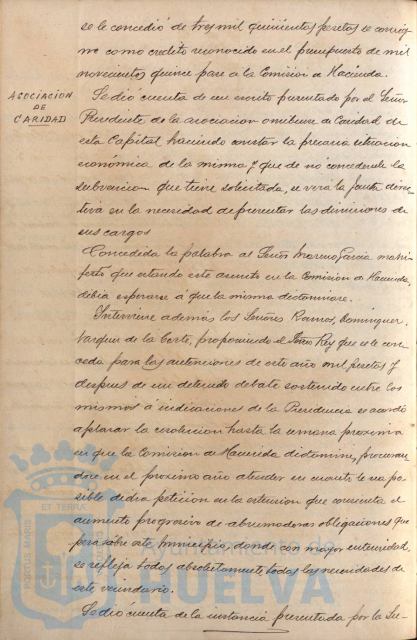 se le concedió de tres mil quinientas pesetas se consig-
ne como credito reconocido en el presupuesto de mil
novecientos quince pase a la Comision de Hacienda.
ASOCIACION
DE
CARIDAD
Se dió cuenta de un escrito presentado por el Señor
Presidente de la asociacion onubense de Caridad de
esta Capital haciendo constar la precaria situacion
económica de la misma y que de no concederle la
subvencion que tiene solicitada, se verá la Junta direc-
tiva en la necesidad de presentar las dimisiones de
sus cargos
Concedida la palabra al Señor Moreno Garcia mani-
festó que estando este asunto en la Comision de Hacienda,
debia esperarse á que la misma dictaminare.
Interviene además los Señores Ramos, Dominguez,
Vazquez de la Corte, proponiendo el Señor Rey que se le con-
ceda para las atenciones de este año mil pesetas y
despues de un detenido debate sostenido entre los
mismos á indicaciones de la Presidencia se acordó
aplazar la resolucion hasta la semana proxima
en que la Comision de Hacienda dictamine, procuran-
dose en el proximo año atender en cuanto le sea po-
sible dicha peticion en la extension que consienta el
aumento progresivo de abrumadoras obligaciones que
pesa sobre este Municipio, donde con mayor intensidad,
se refleja todas absolutamente todas las necesidades de
este vecindario.
Se dió cuenta de la instancia presentada por la Su-
PORTUS MARIS ET TERRAE
Ayuntamiento de
HUELVA